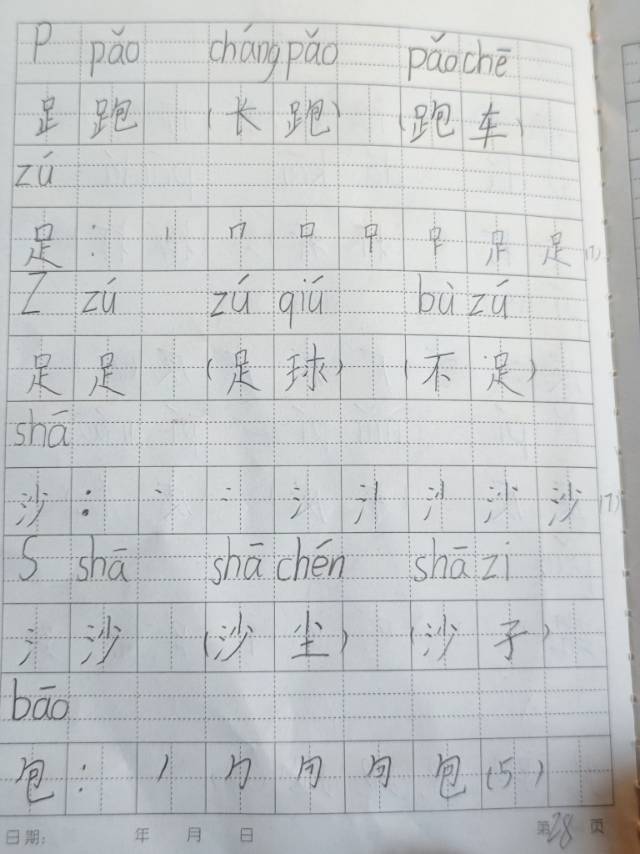 P pǎo chángpǎo pǎochē
𧾷 跑 (长跑) (跑车)
zú
足: 丨 𠃍 口 足 (7)
Z zú zú qiú bù zú
足 足 (足球) (不足)
shā
沙: 丶 冫 氵 沙 沙 (7)
S shā shā chén shā zi
氵 沙 (沙尘) (沙子)
bāo
包: 丿 勹 包 (5)
日期: 年 月 日 第28页